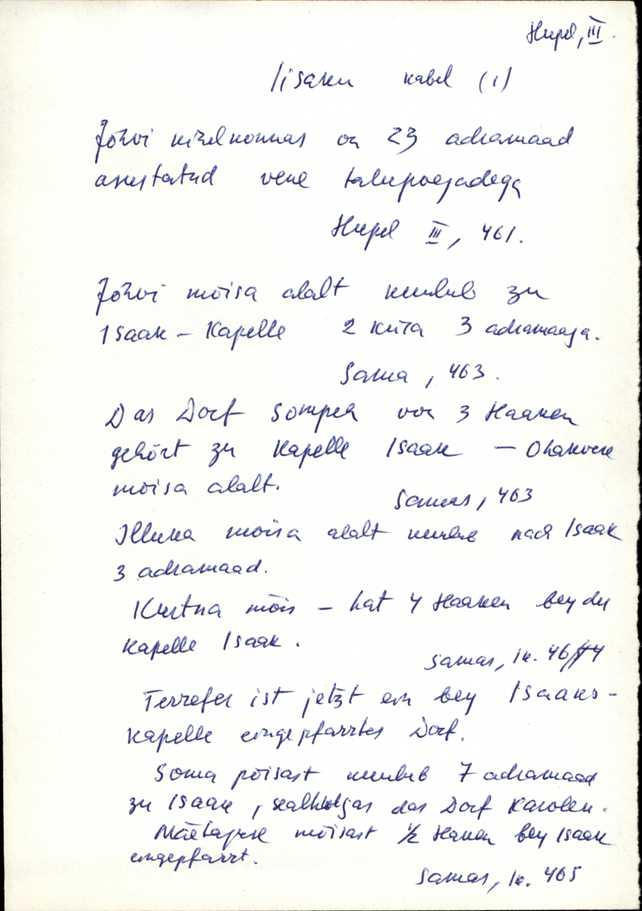 Hupel, III.
Iisaku kabel (1)
Jõhvi kihelkonnas on 23 adramaad
asustatud vene talupoegadega
Hupel III, 461.
Jõhvi mõisa alalt kuulub zu
Isaak – Kapelle 2 küla 3 adramaaga.
Sama, 463.
Das Dorf Sompeh von 3 Haaken
gehört zu Kapelle Isaak – Ohakvere
mõisa alalt.
Samas, 463
Illuka mõisa alalt kuulub nach Isaak
3 adramaad.
Kurtna mõis – hat 4 Haaken bey der
Kapelle Isaak.
Samas, lk.
Terrefer ist jetzt ein bey Isaaks-
Kapelle eingepfarrtes Dorf.
Soma põisast kuulub 7 adramaad
zu Isaak, sealhulgas das Dorf Karollen.
Mäetaguse mõisast 1/2 Haaken bey Isaak
eingepfarrt.
Samas, lk. 465